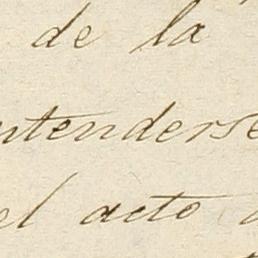 de la
ntenderse
el acto